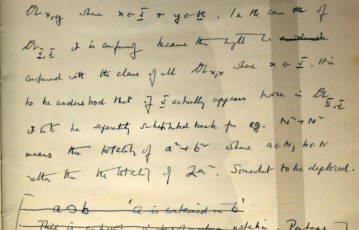 𝔄x,y where x ∈ I + y ∈ K. In the case of
𝔄I,I it is confusing because this might be
confused with the class of all 𝔄x,x where x ∈ I. It is
to be understood that if I actually appears twice in 𝔄I,I
it is to be separately substituted each for e.g. N² + N²
means the totality of a² + b² where a ∈ N, b ∈ N
rather than the totality of 2a². Somewhat to be deplored.
a ⊃ b 'a is contained in b'
This notation. Perhaps